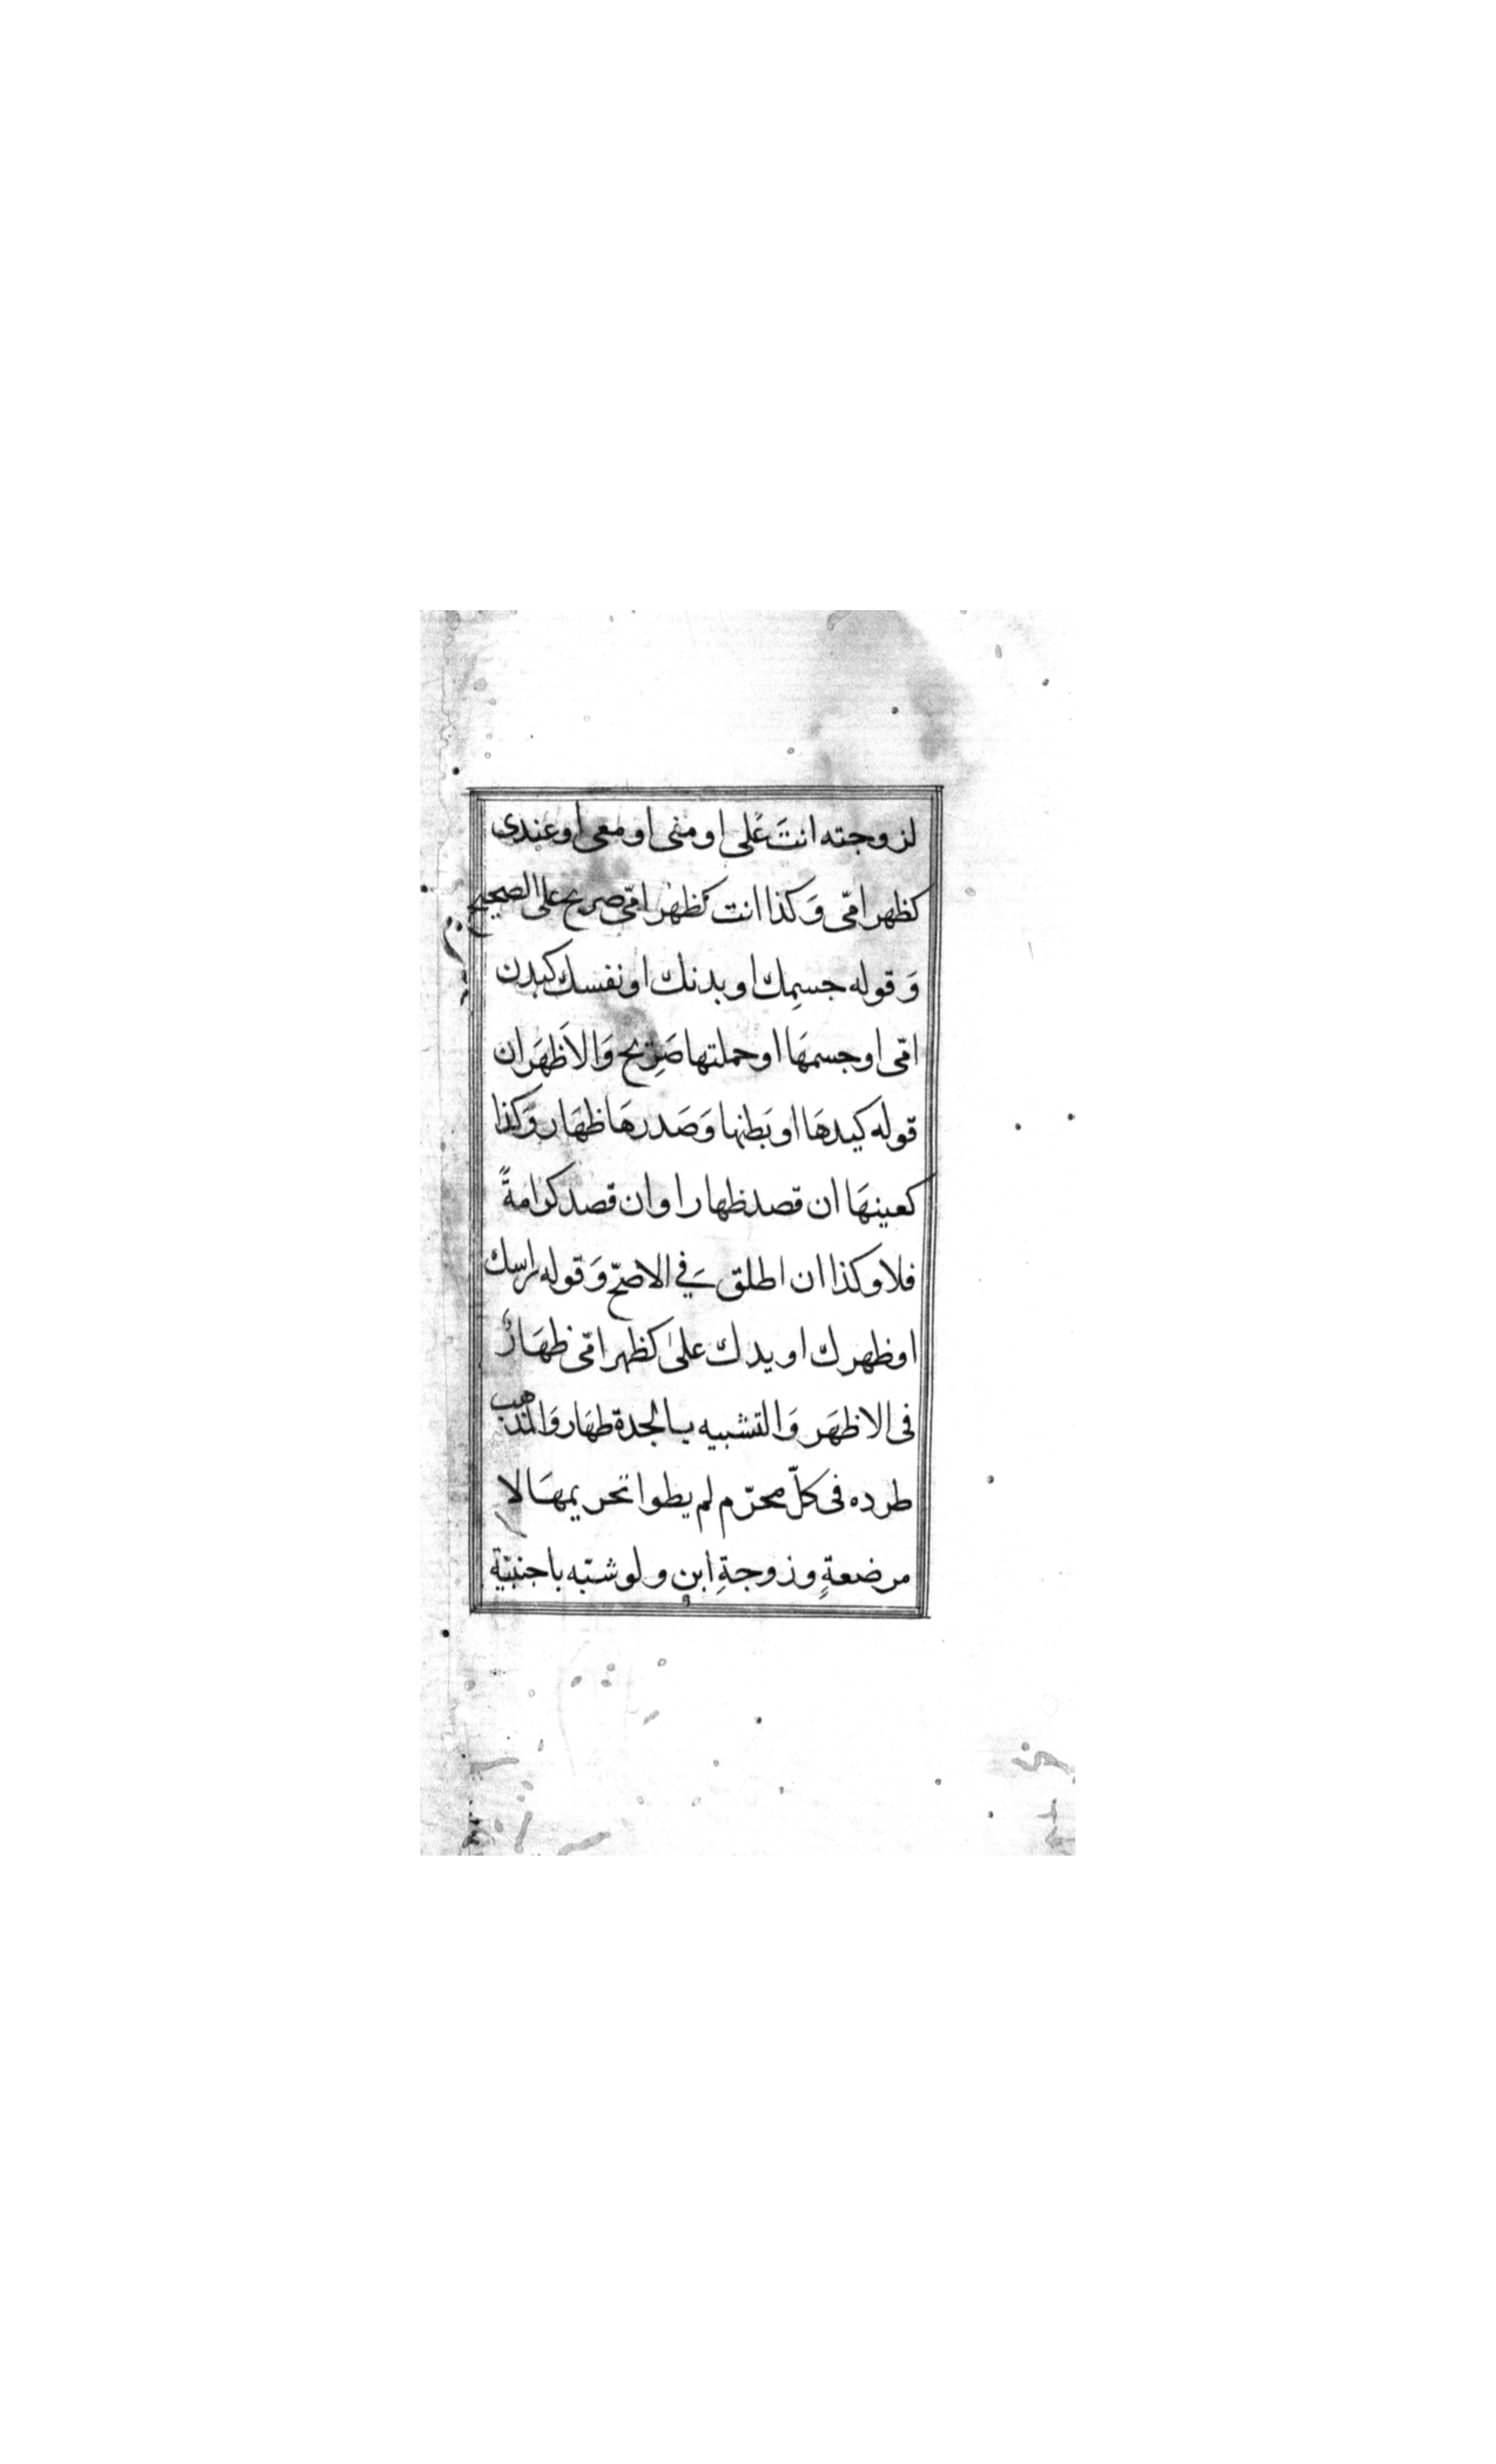 لزوجته انتَ عَلى او منى او معى او عندى
كظهر امّى وَكذا انت كظهر امّى صريح على الصحيح
وَقوله جسمِك او بدنك او نفسك كبدن
امّى او جسمهَا او حملتها صَرِيح وَالاَظهَر ان
قوله كيدهَا او بَطنها وَصَدرهَا ظهَار وَكذا
كعينهَا ان قصد ظهارا وان قصد كرامةً
فلا وكذا ان اطلق في الاصحّ وَقوله راسك
او ظهرك او يدك علىَ كظهر امّى ظهَارٌ
فى الاظهَر وَالتشبيه بالجدة طهَار وَالمذهب
طرده فى كلّ محرّم لم يطوا تحريمهَا لا
مرضعةٍ وزوجةِ ابنٍ ولو شبّه باجنبيّة